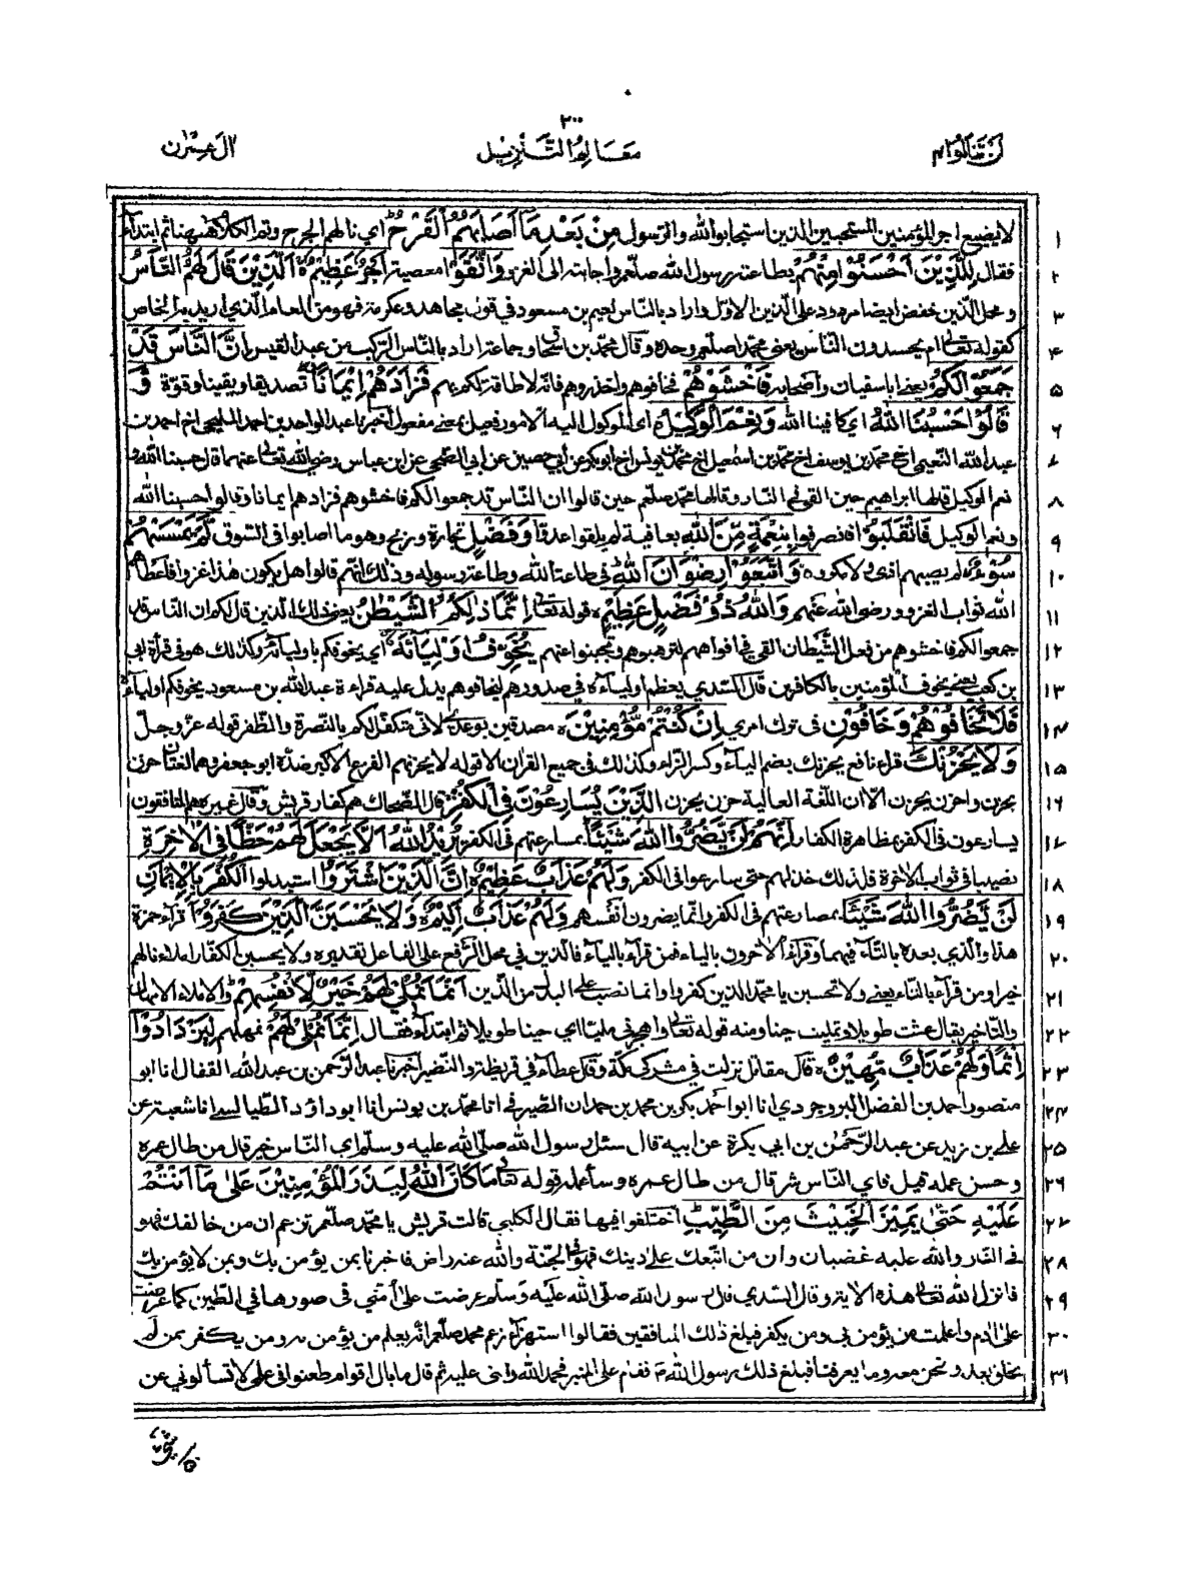 ٢٠٠
لن تنالوا ٤ معالم التنزيل ال عمران
١ لا يضيع اجر المؤمنين المستجيبين الذين استجابوا لله والرسول مِنْ بَعْدِ مَا أَصَابَهُمُ الْقَرْحُ اي نالهم الجرح وتم الكلام ههنا ثم ابتدأ
٢ فقال لِلَّذِيْنَ اَحْسَنُوْا مِنْهُمْ بطاعة رسول الله صلعم واجابته الى الغزو وَاتَّقَوْا معصيته اَجْرٌ عَظِيْمٌ اَلَّذِيْنَ قَالَ لَهُمُ النَّاسُ
٣ ومحل الذين خفض ايضا مردود على الذين الاول واراد بالناس نعيم بن مسعود في قول مجاهد وعكرمة فهو من العام الذي اريد به الخاص
٤ كقوله تعالى ام يحسدون الناس يعني محمدا صلعم وحده وقال محمد بن اسحاق وجماعة اراد بالناس الركب من عبد القيس اِنَّ النَّاسَ قَدْ
٥ جَمَعُوْا لَكُمْ يعني ابا سفيان واصحابه فَاخْشَوْهُمْ فخافوهم واحذروهم فانه لا طاقة لكم بهم فَزَادَهُمْ اِيْمَانًا تصديقا ويقينا وقوة وَّ
٦ قَالُوْا حَسْبُنَا اللّٰهُ اي كافينا الله وَنِعْمَ الْوَكِيْلُ اي الموكول اليه الامور فعيل بمعنى مفعول اخبرنا عبد الواحد بن احمد المليحي اخ احمد بن
٧ عبد الله النعيمي اخ محمد بن يوسف اخ محمد بن اسمعيل اخ محمد بن يونس اخ ابو بكر عن ابي حصين عن ابي الضحى عن ابن عباس رضي الله تعالى عنهما قال حسبنا الله و
٨ نعم الوكيل قالها ابراهيم حين القي في النار وقالها محمد صلعم حين قالوا ان الناس قد جمعوا لكم فاخشوهم فزادهم ايمانا وقالوا حسبنا الله
٩ ونعم الوكيل فَانْقَلَبُوْا فانصرفوا بِنِعْمَةٍ مِّنَ اللّٰهِ بعافية لم يلقوا عدوا وَفَضْلٍ تجارة وربح وهو ما اصابوا في السوق لَّمْ يَمْسَسْهُمْ
١٠ سُوْءٌ لم يصبهم اذى ولا مكروه وَاتَّبَعُوْا رِضْوَانَ اللّٰهِ في طاعة الله وطاعة رسوله وذلك انهم قالوا هل يكون هذا غزوا فاعطاهم
١١ الله ثواب الغزو ورضي الله عنهم وَاللّٰهُ ذُوْ فَضْلٍ عَظِيْمٍ قوله تعالى اِنَّمَا ذٰلِكُمُ الشَّيْطٰنُ يعني ذلك الذين قال لكم ان الناس قد
١٢ جمعوا لكم فاخشوهم من فعل الشيطان القي في افواههم لترهبوهم وتجبنوا عنهم يُخَوِّفُ اَوْلِيَآءَهٗ اي يخوفكم باوليائه وكذلك هو في قرأة ابي
١٣ بن كعب يعني يخوف المؤمنين بالكافرين قال السدي يعظم اولياءه في صدورهم ليخافوهم يدل عليه قراءة عبد الله بن مسعود يخوفكم اولياءه
١٤ فَلَا تَخَافُوْهُمْ وَخَافُوْنِ في ترك امري اِنْ كُنْتُمْ مُّؤْمِنِيْنَ مصدقين بوعدي لاني متكفل لكم بالنصرة والظفر قوله عز وجل
١٥ وَلَا يَحْزُنْكَ قراء نافع يحزنك بضم الياء وكسر الزاء وكذلك في جميع القران الا قوله لا يحزنهم الفزع الاكبر ضده ابو جعفر وهما لغتان حزن
١٦ يحزن واحزن يحزن الا ان اللغة العالية حزن يحزن الَّذِيْنَ يُسَارِعُوْنَ فِى الْكُفْرِ قال الضحاك هم كفار قريش وقال غيره هم المنافقون
١٧ يسارعون في الكفر بمظاهرة الكفار اِنَّهُمْ لَنْ يَّضُرُّوا اللّٰهَ شَيْئًا بمسارعتهم في الكفر يُرِيْدُ اللّٰهُ اَلَّا يَجْعَلَ لَهُمْ حَظًّا فِى الْاٰخِرَةِ
١٨ نصيبا في ثواب الاخرة فلذلك خذلهم حتى سارعوا في الكفر وَلَهُمْ عَذَابٌ عَظِيْمٌ اِنَّ الَّذِيْنَ اشْتَرَوُا استبدلوا الْكُفْرَ بِالْاِيْمَانِ
١٩ لَنْ يَّضُرُّوا اللّٰهَ شَيْئًا بمسارعتهم في الكفر وانما يضرون انفسهم وَلَهُمْ عَذَابٌ اَلِيْمٌ وَلَا يَحْسَبَنَّ الَّذِيْنَ كَفَرُوْا قرأ حمزة
٢٠ هذا والذي بعده بالتاء فيهما وقرأ الاخرون بالياء فمن قرأ بالياء فالذين في محل الرفع على الفاعل تقديره ولا يحسبن الكفار املاءنا لهم
٢١ خيرا ومن قرأ بالتاء يعني ولا تحسبن يا محمد الذين كفروا وانما نصب على البدل من الذين اَنَّمَا نُمْلِىْ لَهُمْ خَيْرٌ لِّاَنْفُسِهِمْ والاملاء الامهال
٢٢ والتاخير يقال عشت طويلا وتمليت حينا ومنه قوله تعالى واهجرني مليا اي حينا طويلا ثم ابتدأ فقال اِنَّمَا نُمْلِىْ لَهُمْ نمهلهم لِيَزْدَادُوْا
٢٣ اِثْمًا وَلَهُمْ عَذَابٌ مُّهِيْنٌ قال مقاتل نزلت في مشركي مكة وقال عطاء في قريظة والنضير اخبرنا عبد الرحمن بن عبد الله القفال انا ابو
٢٤ منصور احمد بن الفضل البروجردي انا ابو احمد بكر بن محمد بن حمدان الصيرفي انا محمد بن يونس انا ابو داؤد الطيالسي انا شعبة عن
٢٥ علي بن زيد عن عبد الرحمن بن ابي بكرة عن ابيه قال سئل رسول الله صلى الله عليه وسلم اي الناس خير قال من طال عمره
٢٦ وحسن عمله قيل فاي الناس شر قال من طال عمره وساء عمله قوله تعالى مَا كَانَ اللّٰهُ لِيَذَرَ الْمُؤْمِنِيْنَ عَلٰى مَآ اَنْتُمْ
٢٧ عَلَيْهِ حَتّٰى يَمِيْزَ الْخَبِيْثَ مِنَ الطَّيِّبِ اختلفوا فيها فقال الكلبي قالت قريش يا محمد صلعم تزعم ان من خالفك فهو
٢٨ في النار والله عليه غضبان وان من اتبعك على دينك فهو في الجنة والله عنه راض فاخبرنا بمن يؤمن بك وبمن لا يؤمن بك
٢٩ فانزل الله تعالى هذه الاية وقال السدي قال رسول الله صلى الله عليه وسلم عرضت علي امتي في صورها في الطين كما عرضت
٣٠ على ادم واعلمت من يؤمن بي ومن يكفر فبلغ ذلك المنافقين فقالوا استهزاء زعم محمد صلعم انه يعلم من يؤمن به ومن يكفر ممن لم
٣١ يخلق بعد ونحن معه وما يعرفنا فبلغ ذلك رسول الله ص فقام على المنبر فحمد الله واثنى عليه ثم قال ما بال اقوام طعنوا في علمي لا تسألوني عن